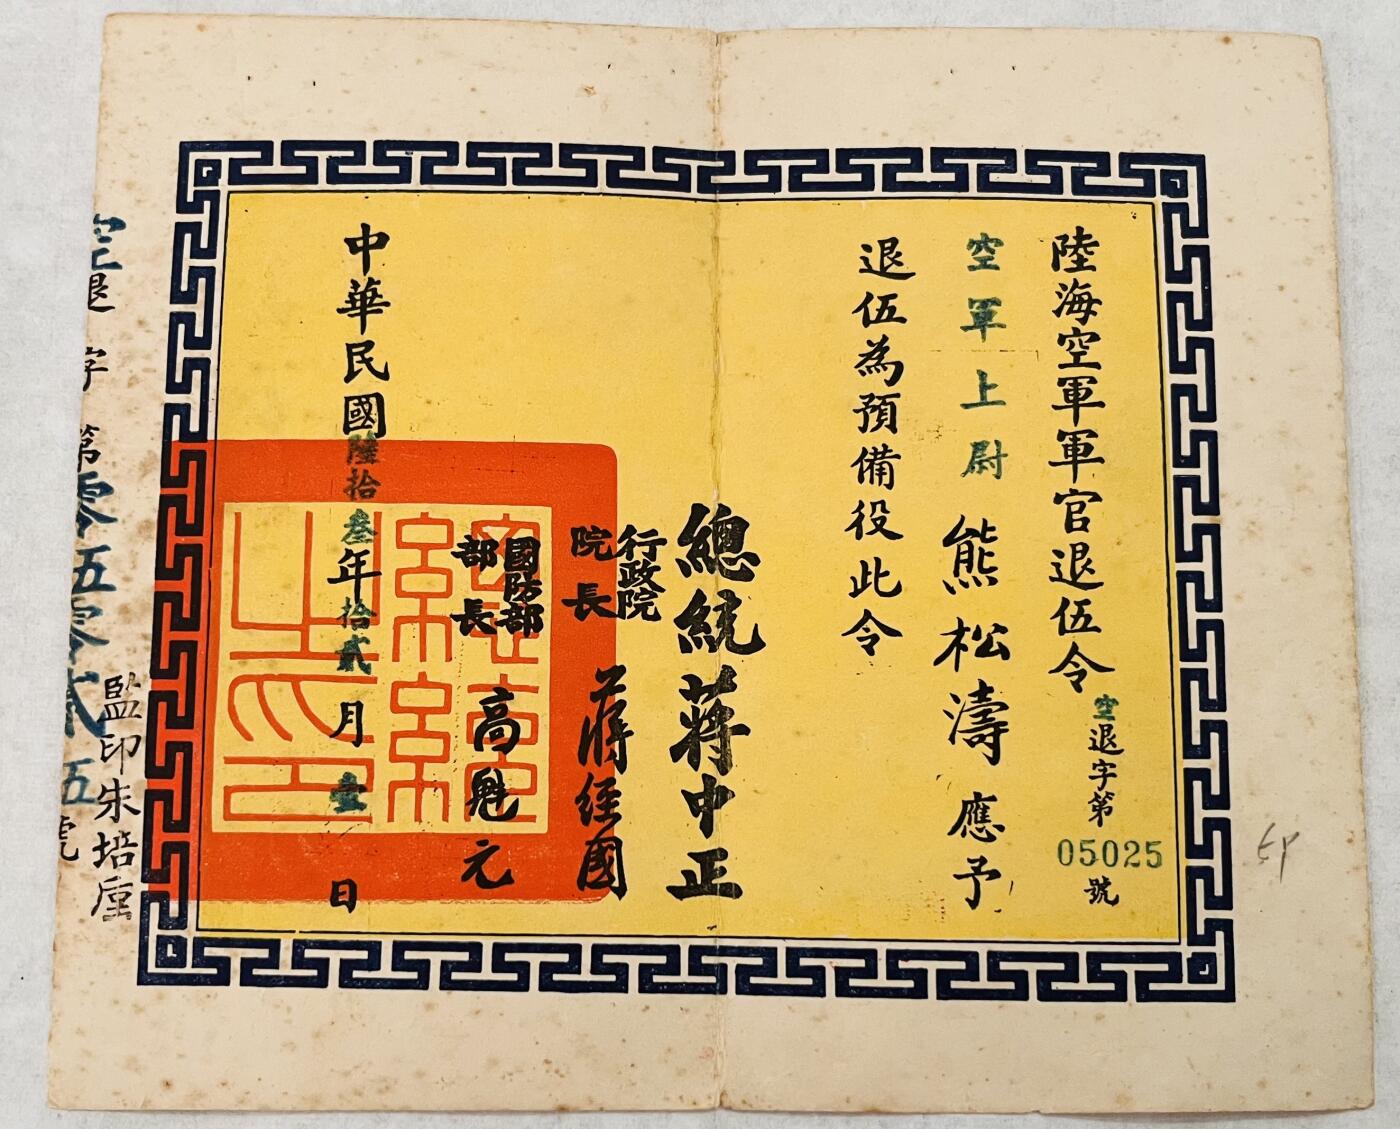 陸海空軍軍官退伍令
空退字第05025號
空軍上尉熊松濤應予
退伍為預備役此令
總統蔣中正
行政院院長蔣經國
國防部部長高魁元
中華民國陸拾叁年拾貳月壹日
監印朱培垕
空退字第零伍零貳伍號